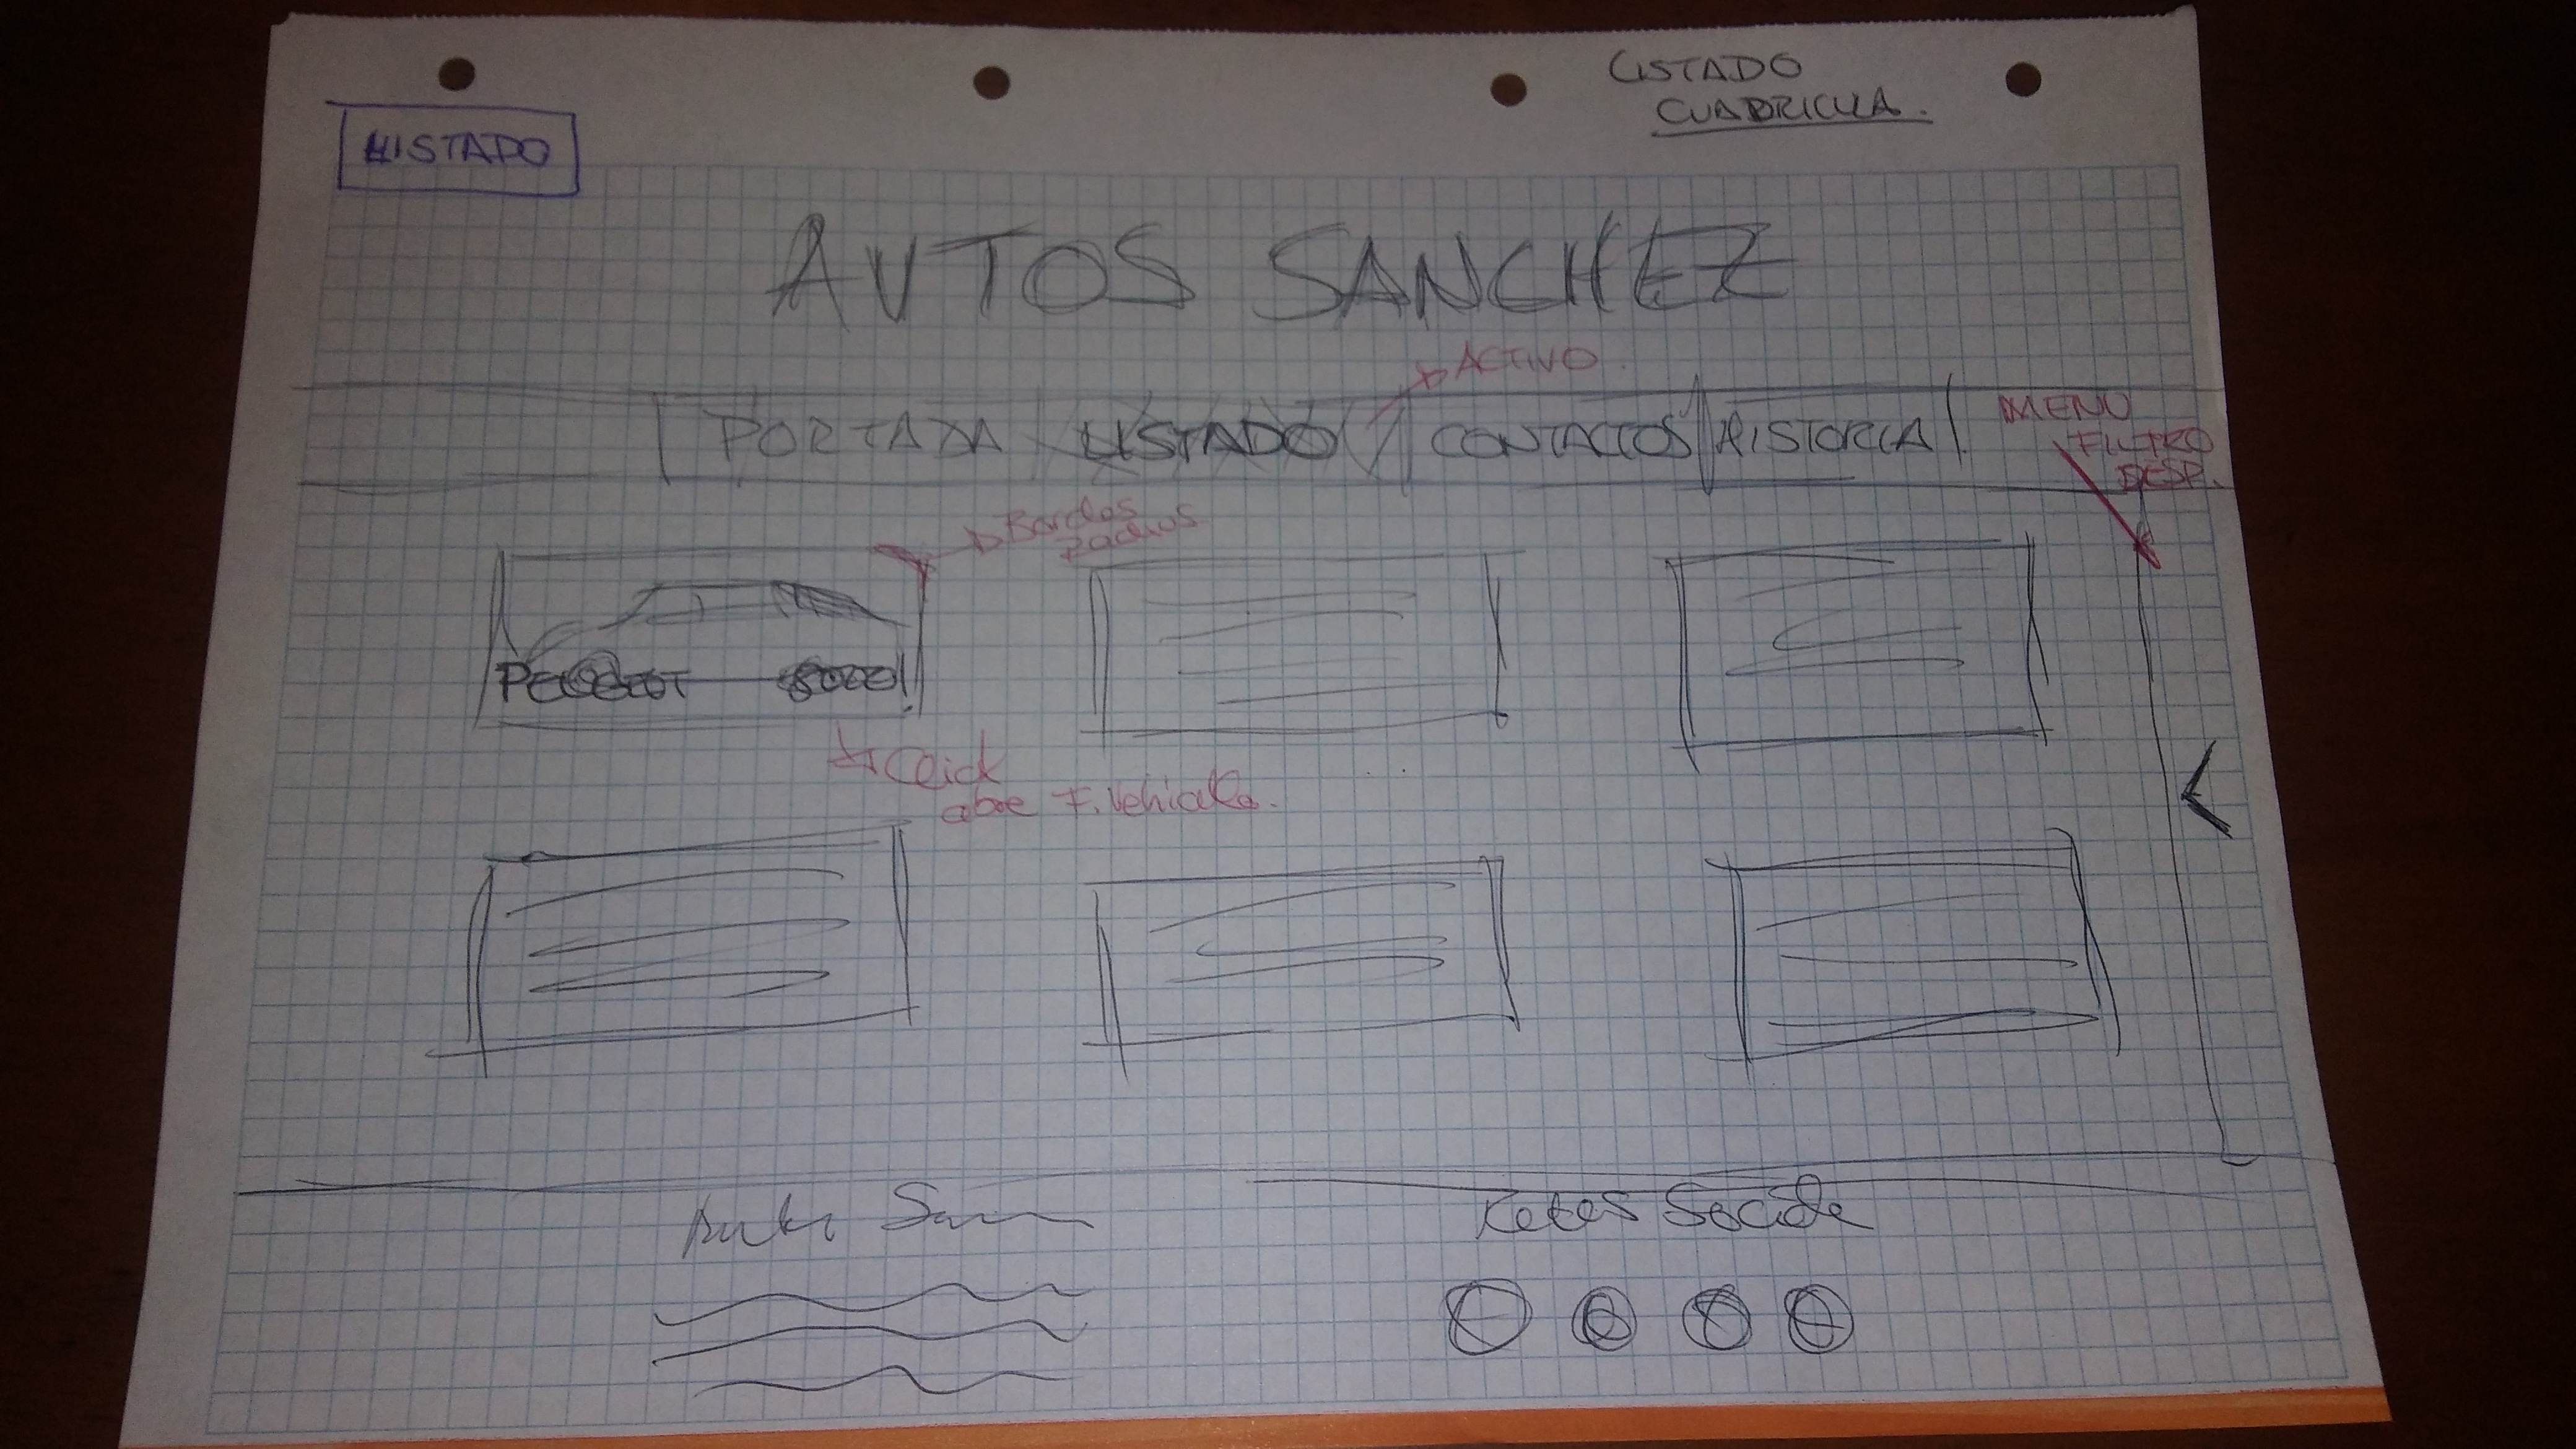 LISTADO
CUADRICULA.
LISTADO
AUTOS SANCHEZ
ACTIVO.
PORTADA LISTADO CONTACTOS HISTORIA
MENU
FILTRO
DESP.
Bordes
radius
PEUGEOT 8000
Click
abre F. Vehiculo.
Redes Sociale